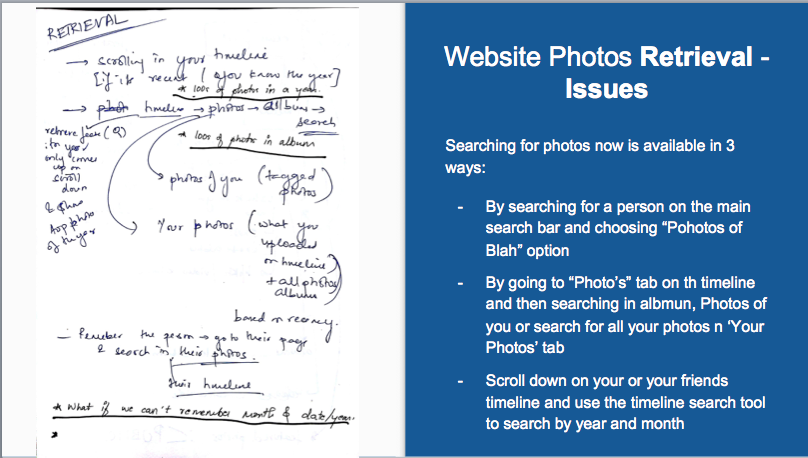 RETRIEVAL
→ scrolling in your timeline
[if its recent / if you know the year]
* 100s of photos in a year.
→ photo timeline → photos → albums →
search
* 100s of photos in album
retrieve
only comes
up on
scroll
down
→ photos of you (tagged
photos)
Your photos (what you
uploaded
on timeline)
+ all photos
albums
based on recency.
– Remember the person → go to their page
& search in their photos.
their timeline
* What if we can't remember month & date/year.
Website Photos Retrieval -
Issues
Searching for photos now is available in 3
ways:
- By searching for a person on the main
search bar and choosing “Pohotos of
Blah” option
- By going to “Photo’s” tab on th timeline
and then searching in albmun, Photos of
you or search for all your photos n ‘Your
Photos’ tab
- Scroll down on your or your friends
timeline and use the timeline search tool
to search by year and month